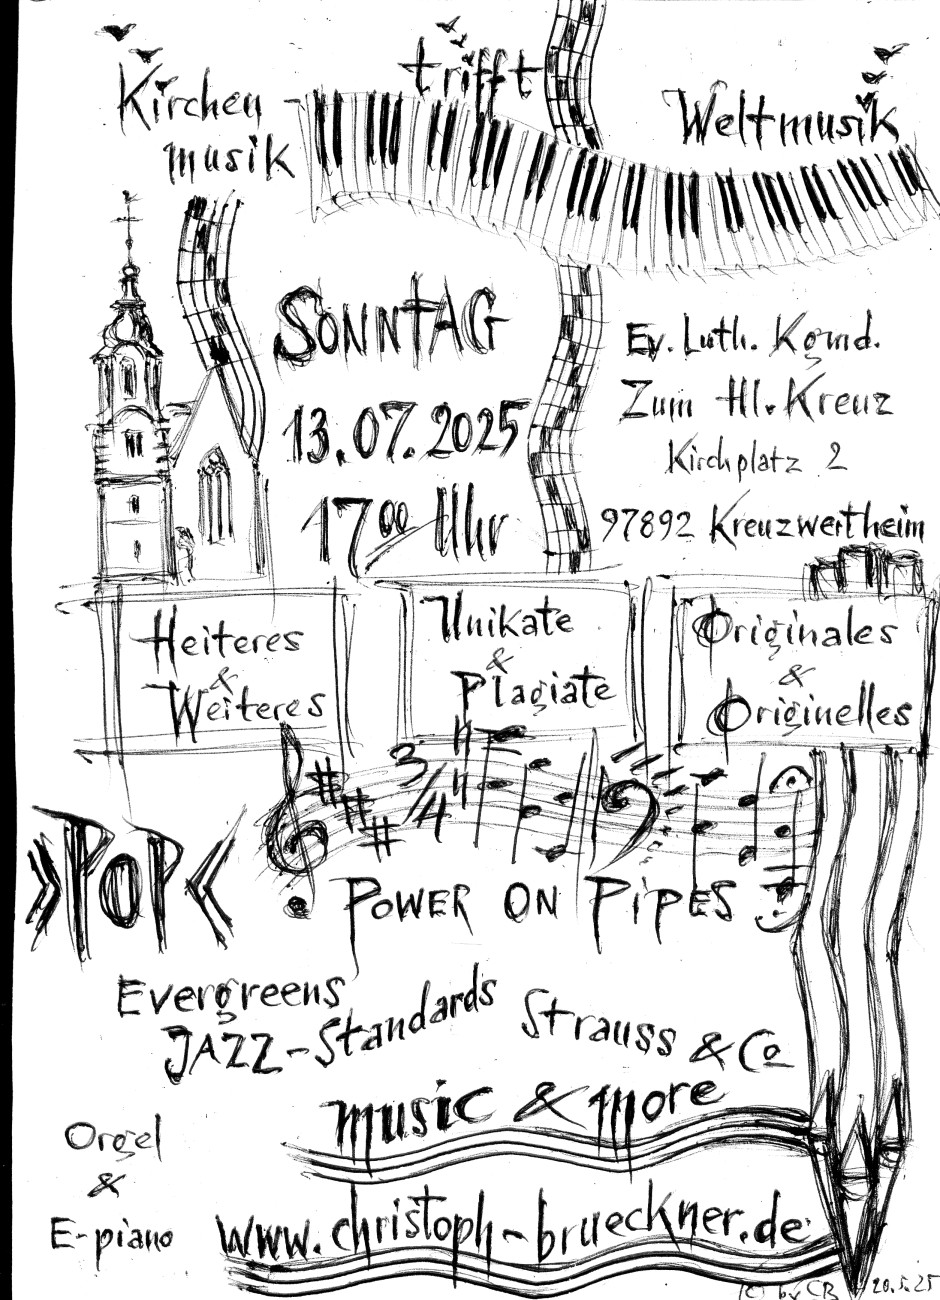 Kirchen-
musik
trifft
Weltmusik
SONNTAG
13.07.2025
17⁰⁰ Uhr
Ev. Luth. Kgmd.
Zum Hl. Kreuz
Kirchplatz 2
97892 Kreuzwertheim
Heiteres
&
Weiteres
Unikate
&
Plagiate
Originales
&
Originelles
3/4
»POP«
POWER ON PIPES
Evergreens
JAZZ-Standards
Strauss & Co
music & more
Orgel
&
E-piano
www.christoph-brueckner.de
(C) by CB 20.5.25